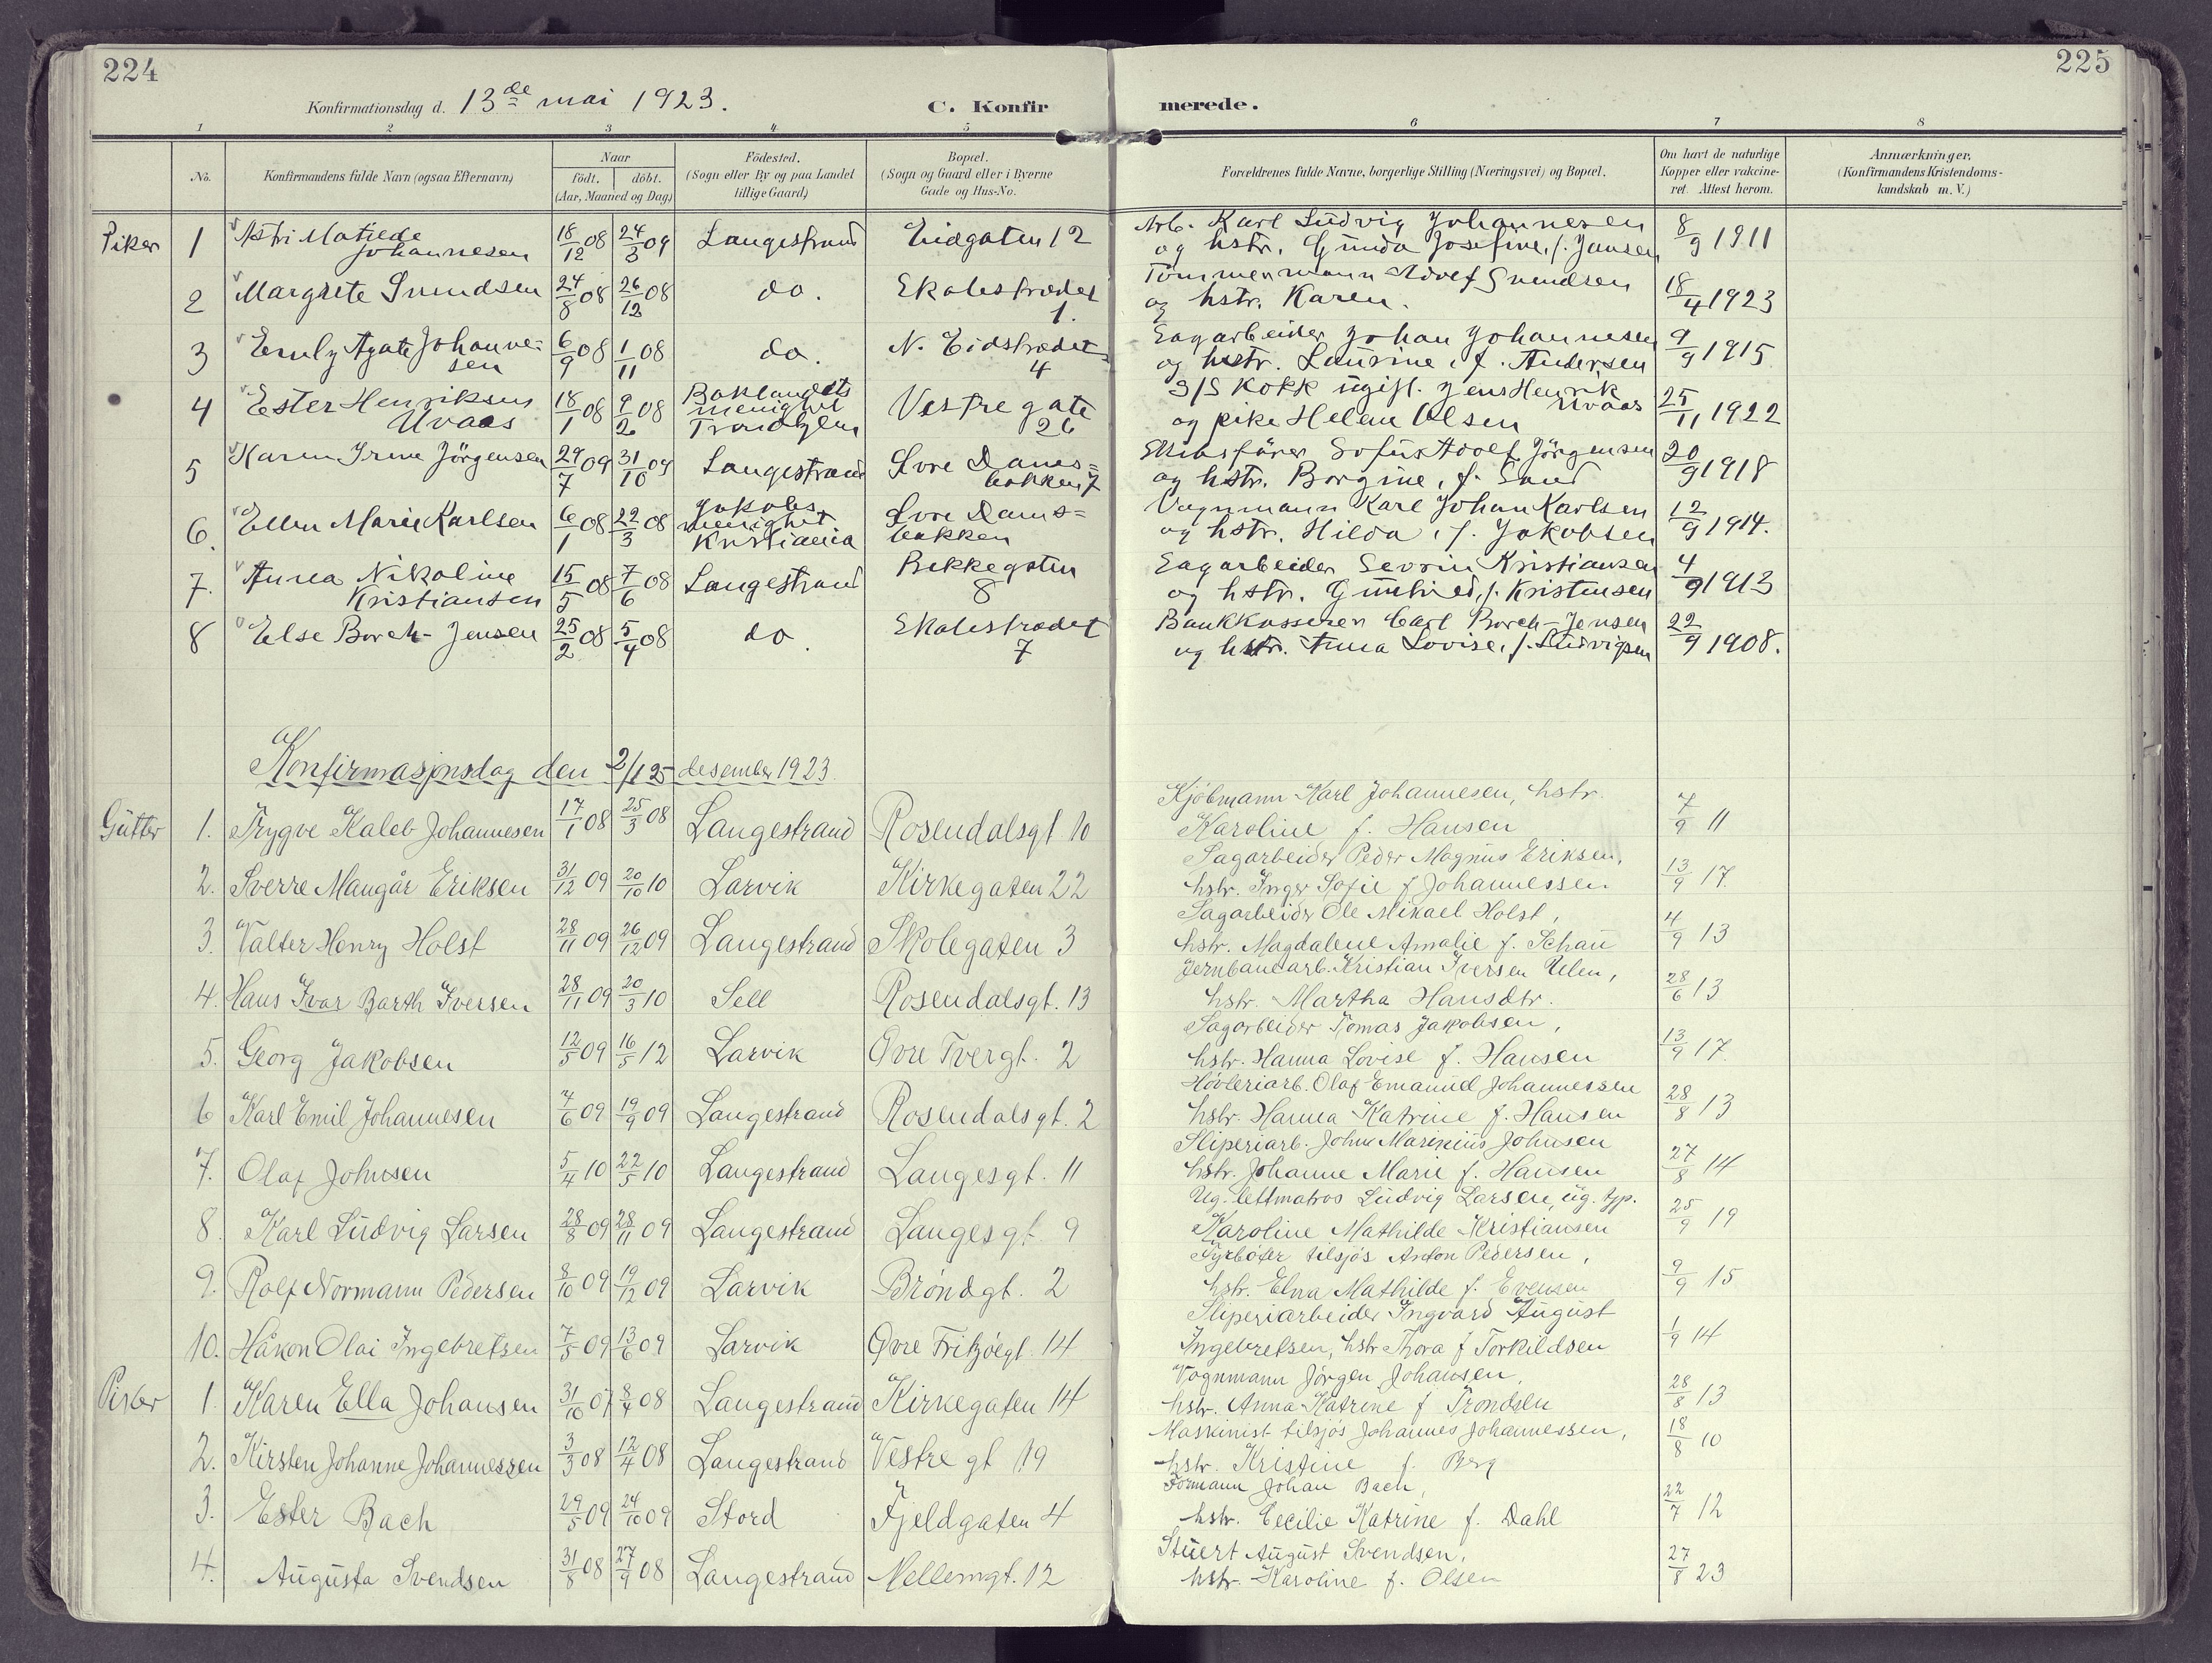 224
225
Konfirmationsdag d. 13de mai 1923.
C. Konfirmerede.
1 2 3 4 5 6 7 8
No.
Konfirmandens fulde Navn (ogsaa Efternavn)
Naar
födt. döbt.
(Aar, Maaned og Dag)
Födested.
(Sogn eller By og paa Landet
tillige Gaard)
Bopæl.
(Sogn og Gaard eller i Byerne
Gade og Hus-No.
Forældrenes fulde Navne, borgerlige Stilling (Næringsvei) og Bopæl.
Om havt de naturlige
Kopper eller vakcine-
ret. Attest herom.
Anmærkninger.
(Konfirmandens Kristendoms-
kundskab m. V.)
Piker 1 Astri Matilde Johannesen 18/12 08 24/3 09 Langestrand Eidgaten 12 Arb. Karl Ludvig Johannesen
og hstr. Gunda Josefine, f. Jansen 8/9 1911
2 Margrete Svendsen 24/8 08 26/12 08 do. Skolestrædet 1. Tømmermann Adolf Svendsen
og hstr. Karen. 18/4 1923
3 Emly Agate Johannesen 6/9 08 1/11 08 do. N. Eidstrædet 4 Sagarbeider Johan Johannesen
og hstr. Laurine, f. Andersen 9/9 1915
4 Ester Henriksen Uvaas 18/1 08 9/2 08 Baklandets menighet Trondhjem Vestre gate 26 S/S Kokk ugift. Jens Henrik Uvaas
og pike Helene Olsen 25/11 1922
5 Karen Irene Jörgensen 29/7 09 31/10 09 Langestrand Øvre Damsbakken 7 Sofus Adolf Jörgensen
og hstr. Borgine, f. Sand 20/9 1918
6. Ellen Marie Karlsen 6/1 08 22/3 08 Jakobs menighet. Kristiania Øvre Damsbakken Vognmann Karl Johan Karlsen
og hstr. Hilda, f. Jakobsen 12/9 1914.
7. Anna Nikoline Kristiansen 15/5 08 7/6 08 Langestrand Bekkegaten 8 Sagarbeider Sevrin Kristiansen
og hstr. Gunhild, f. Kristensen 4/9 1913
8 Else Borch-Jensen 25/2 08 5/4 08 do. Skolestrædet 7 Bankkasseren Carl Borch-Jensen
og hstr. Anna Lovise, f. Ludvigsen 22/9 1908.
Konfirmasjonsdag den 2/12 desember 1923.
Gutter 1. Trygve Kaleb Johannesen 17/1 08 25/3 08 Langestrand Rosendalsgt 10 Kjöbmann Karl Johannesen, hstr.
Karoline f. Hansen 7/9 11
2. Sverre Mangår Eriksen 31/12 09 20/10 10 Larvik Kirkegaten 22 Sagarbeider Peder Magnus Eriksen,
hstr. Inger Sofie f Johannessen 13/9 17.
3. Valter Henry Holst 28/11 09 26/12 09 Langestrand Skolegaten 3 Sagarbeider Ole Mikael Holst,
hstr. Magdalene Amalie f. Schau 4/9 13
4. Hans Ivar Barth Iversen 28/11 09 20/3 10 Sell Rosendalsgt. 13 Jernbanearb. Kristian Iversen Ulen,
hstr. Martha Hansdtr. 28/6 13
5. Georg Jakobsen 12/5 09 16/5 12 Larvik Øvre Tvergt. 2 Sagarbeider Tomas Jakobsen,
hstr. Hanna Lovise f. Hansen 13/9 17.
6 Karl Emil Johannesen 4/6 09 19/9 09 Langestrand Rosendalsgt. 2 Høvleriarb. Olaf Emanuel Johannessen
hstr. Hanna Katrine f. Hansen 28/8 13
7. Olaf Johnsen 5/4 10 22/5 10 Langestrand Langesgt. 11 Sliperiarb. Johne Marinius Johnsen
hstr. Johanne Marie f. Hansen 27/8 14
8. Karl Ludvig Larsen 28/8 09 28/11 09 Langestrand Langesgt. 9 Ug. lettmatros Ludvig Larsen, ug. typ.
Karoline Mathilde Kristiansen 25/9 19
9. Rolf Normann Pedersen 8/10 09 19/12 09 Larvik Bröndgt. 2 Fyrböter tilsjös Anton Pedersen,
hstr. Elna Mathilde f. Evensen 9/9 15
10. Håkon Olai Ingebretsen 7/5 09 13/6 09 Larvik Øvre Fritzöegt. 14 Sliperiarbeider Ingvard August
Ingebretsen, hstr Thora f Torkildsen 1/9 14
Piker 1. Karen Ella Johansen 31/10 07 8/4 08 Langestrand Kirkegaten 14 Vognmann Jörgen Johansen,
hstr. Anna Katrine f Trondsen 28/8 13
2. Kirsten Johanne Johannessen 3/3 08 12/4 08 Langestrand Vestre gt 19 Maskinist tilsjös Johannes Johannessen,
hstr. Kristine f. Berg 18/8 10
3. Ester Bach 29/5 09 24/10 09 Stord Fjeldgaten 4 Formann Johan Bach,
hstr. Cecilie Katrine f. Dahl 22/7 12
4. Augusta Svendsen 31/8 08 27/9 08 Langestrand Mellemgt. 12 Stuert August Svendsen,
hstr. Karoline f. Olsen 27/8 23